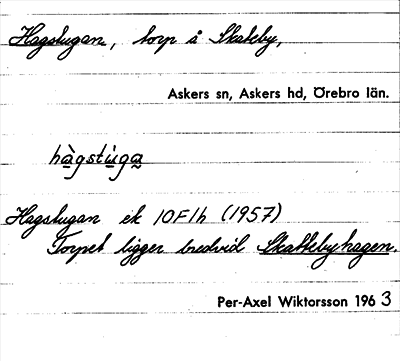 Hagstugan, torp å Skateby,
Askers sn, Askers hd, Örebro län.
hàgstùga
Hagstugan ek 10F1h (1957)
Torpet ligger bredvid Skattebyhagen.
Per-Axel Wiktorsson 1963